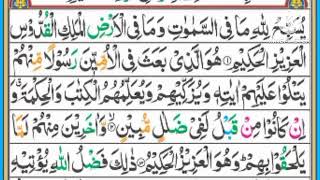 يُسَبِّحُ لِلّٰهِ مَا فِى السَّمٰوٰتِ وَمَا فِى الْاَرْضِ الْمَلِكِ الْقُدُّوْسِ
الْعَزِيْزِ الْحَكِيْمِ ۝ هُوَ الَّذِىْ بَعَثَ فِى الْاُمِّيّٖنَ رَسُوْلًا مِّنْهُمْ
يَتْلُوْا عَلَيْهِمْ اٰيٰتِهٖ وَيُزَكِّيْهِمْ وَيُعَلِّمُهُمُ الْكِتٰبَ وَالْحِكْمَةَ ۗ وَ
اِنْ كَانُوْا مِنْ قَبْلُ لَفِىْ ضَلٰلٍ مُّبِيْنٍ ۝ وَّاٰخَرِيْنَ مِنْهُمْ لَمَّا
يَلْحَقُوْا بِهِمْ ۗ وَهُوَ الْعَزِيْزُ الْحَكِيْمُ ۝ ذٰلِكَ فَضْلُ اللّٰهِ يُؤْتِيْهِ